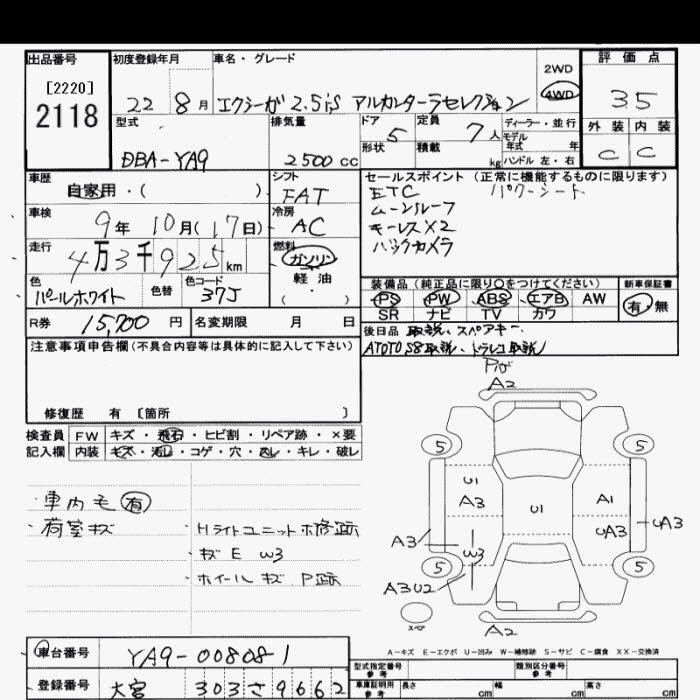 出品番号 初度登録年月 車名・グレード 評価点
[2220]
2118
22 8月 エクシーガ 2.5is アルカンターラセレクション
2WD
4WD
3.5
型式 排気量 ドア 5 定員 7人 ディーラー・並行 外装 内装
モデル年式 年
DBA-YA9 2500cc 形状 積載 kg ハンドル 左・右 C C
車歴 シフト セールスポイント (正常に機能するものに限ります)
自家用・( ) FAT ETC パワーシート
車検 冷房 ムーンルーフ
9年 10月(17日) AC キーレスX2
走行 燃料 バックカメラ
4万3千925km ガソリン
軽油
・( )
色 色替 色コード 装備品 (純正品に限り○をつけてください) 新車保証書
パールホワイト 37J PS PW ABS エアB AW 有・無
SR ナビ TV カワ
R券 15,700円 名変期限 月 日 後日品 取説、スペアキー、
ATOTO S8取説、ドラレコ取説
注意事項申告欄(不具合内容等は具体的に記入して下さい)
修復歴 有 [箇所 ]
検査員 FW キズ・飛石・ヒビ割・リペア跡・×要
記入欄 内装 キズ・汚レ・コゲ・穴・凹レ・キレ・破レ
・車内毛 有
・荷室キズ
・Hライトユニットホ修跡
キズ E W3
・ホイールキズ P跡
A2
5 5
U1
A3
U1
A1
UA3
UA3
A3
W3
5 5
A3U2
スペア
A2
A−キズ E−エクボ U−凹み W−補修跡 S−サビ C−腐食 XX−交換済
車台番号 YA9-008081
登録番号 大宮 303 さ 9662
型式指定番号 参考 類別区分番号 参考
車庫証明用 参考 長さ cm 幅 cm 高さ cm